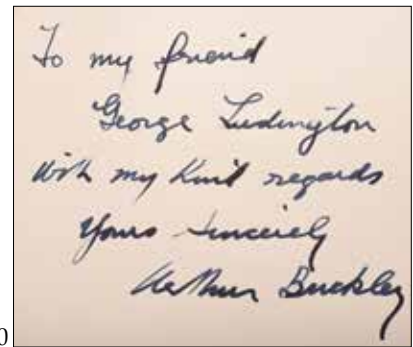 To my friend
George Ludington
With my Kind regards
Yours Sincerely
Arthur Buckley
0